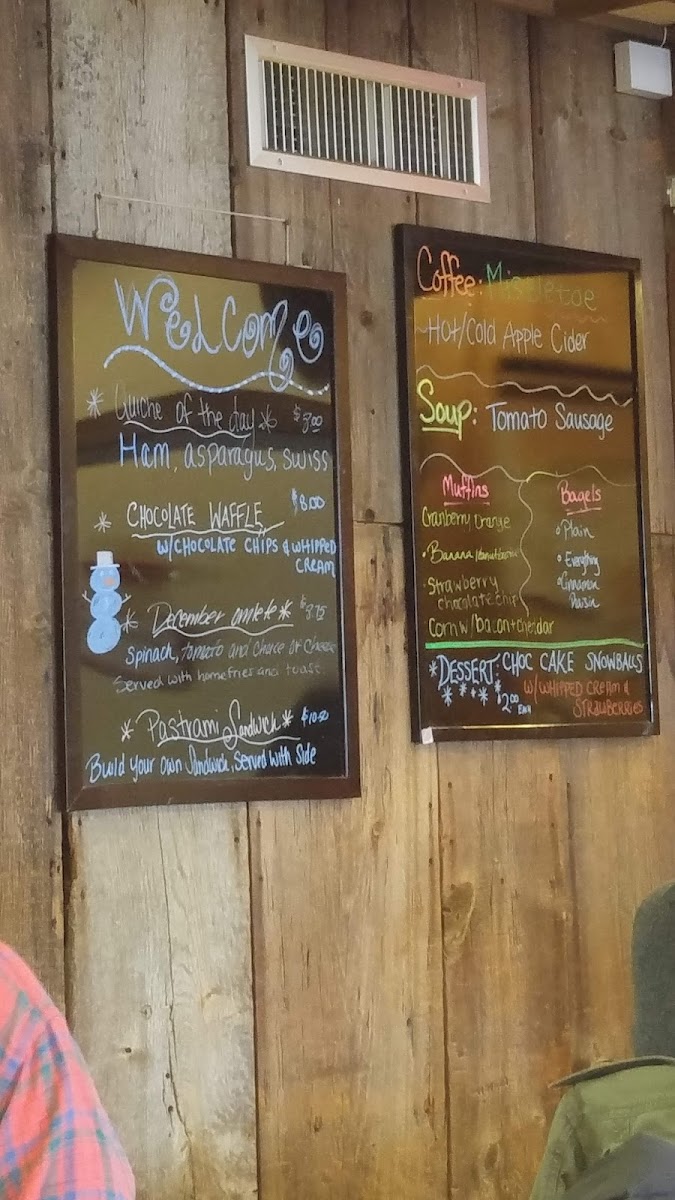 Welcome
Quiche of the day $3.00
Ham, asparagus, swiss
CHOCOLATE WAFFLE $8.00
W/CHOCOLATE CHIPS & WHIPPED
CREAM
December omlete
Spinach, tomato and choice of cheese
Served with homefries and toast.
Pastrami Sandwich $10.50
Build your own Sandwich, served with Side
Coffee: Mistletoe
Hot/Cold Apple Cider
Soup: Tomato Sausage
Muffins
Cranberry Orange
Banana
Strawberry
chocolate chip
Corn w/ bacon + chedar
Bagels
Plain
Everything
Cinnamon
Raisin
DESSERT: CHOC CAKE SNOWBALLS
$2.00 EACH W/WHIPPED CREAM &
STRAWBERRIES